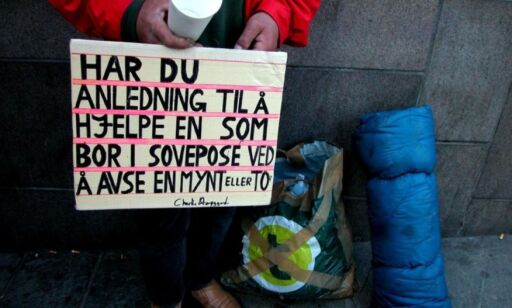 HAR DU
ANLEDNING TIL Å
HJELPE EN SOM
BOR I SOVEPOSE VED
Å AVSE EN MYNT ELLER TO